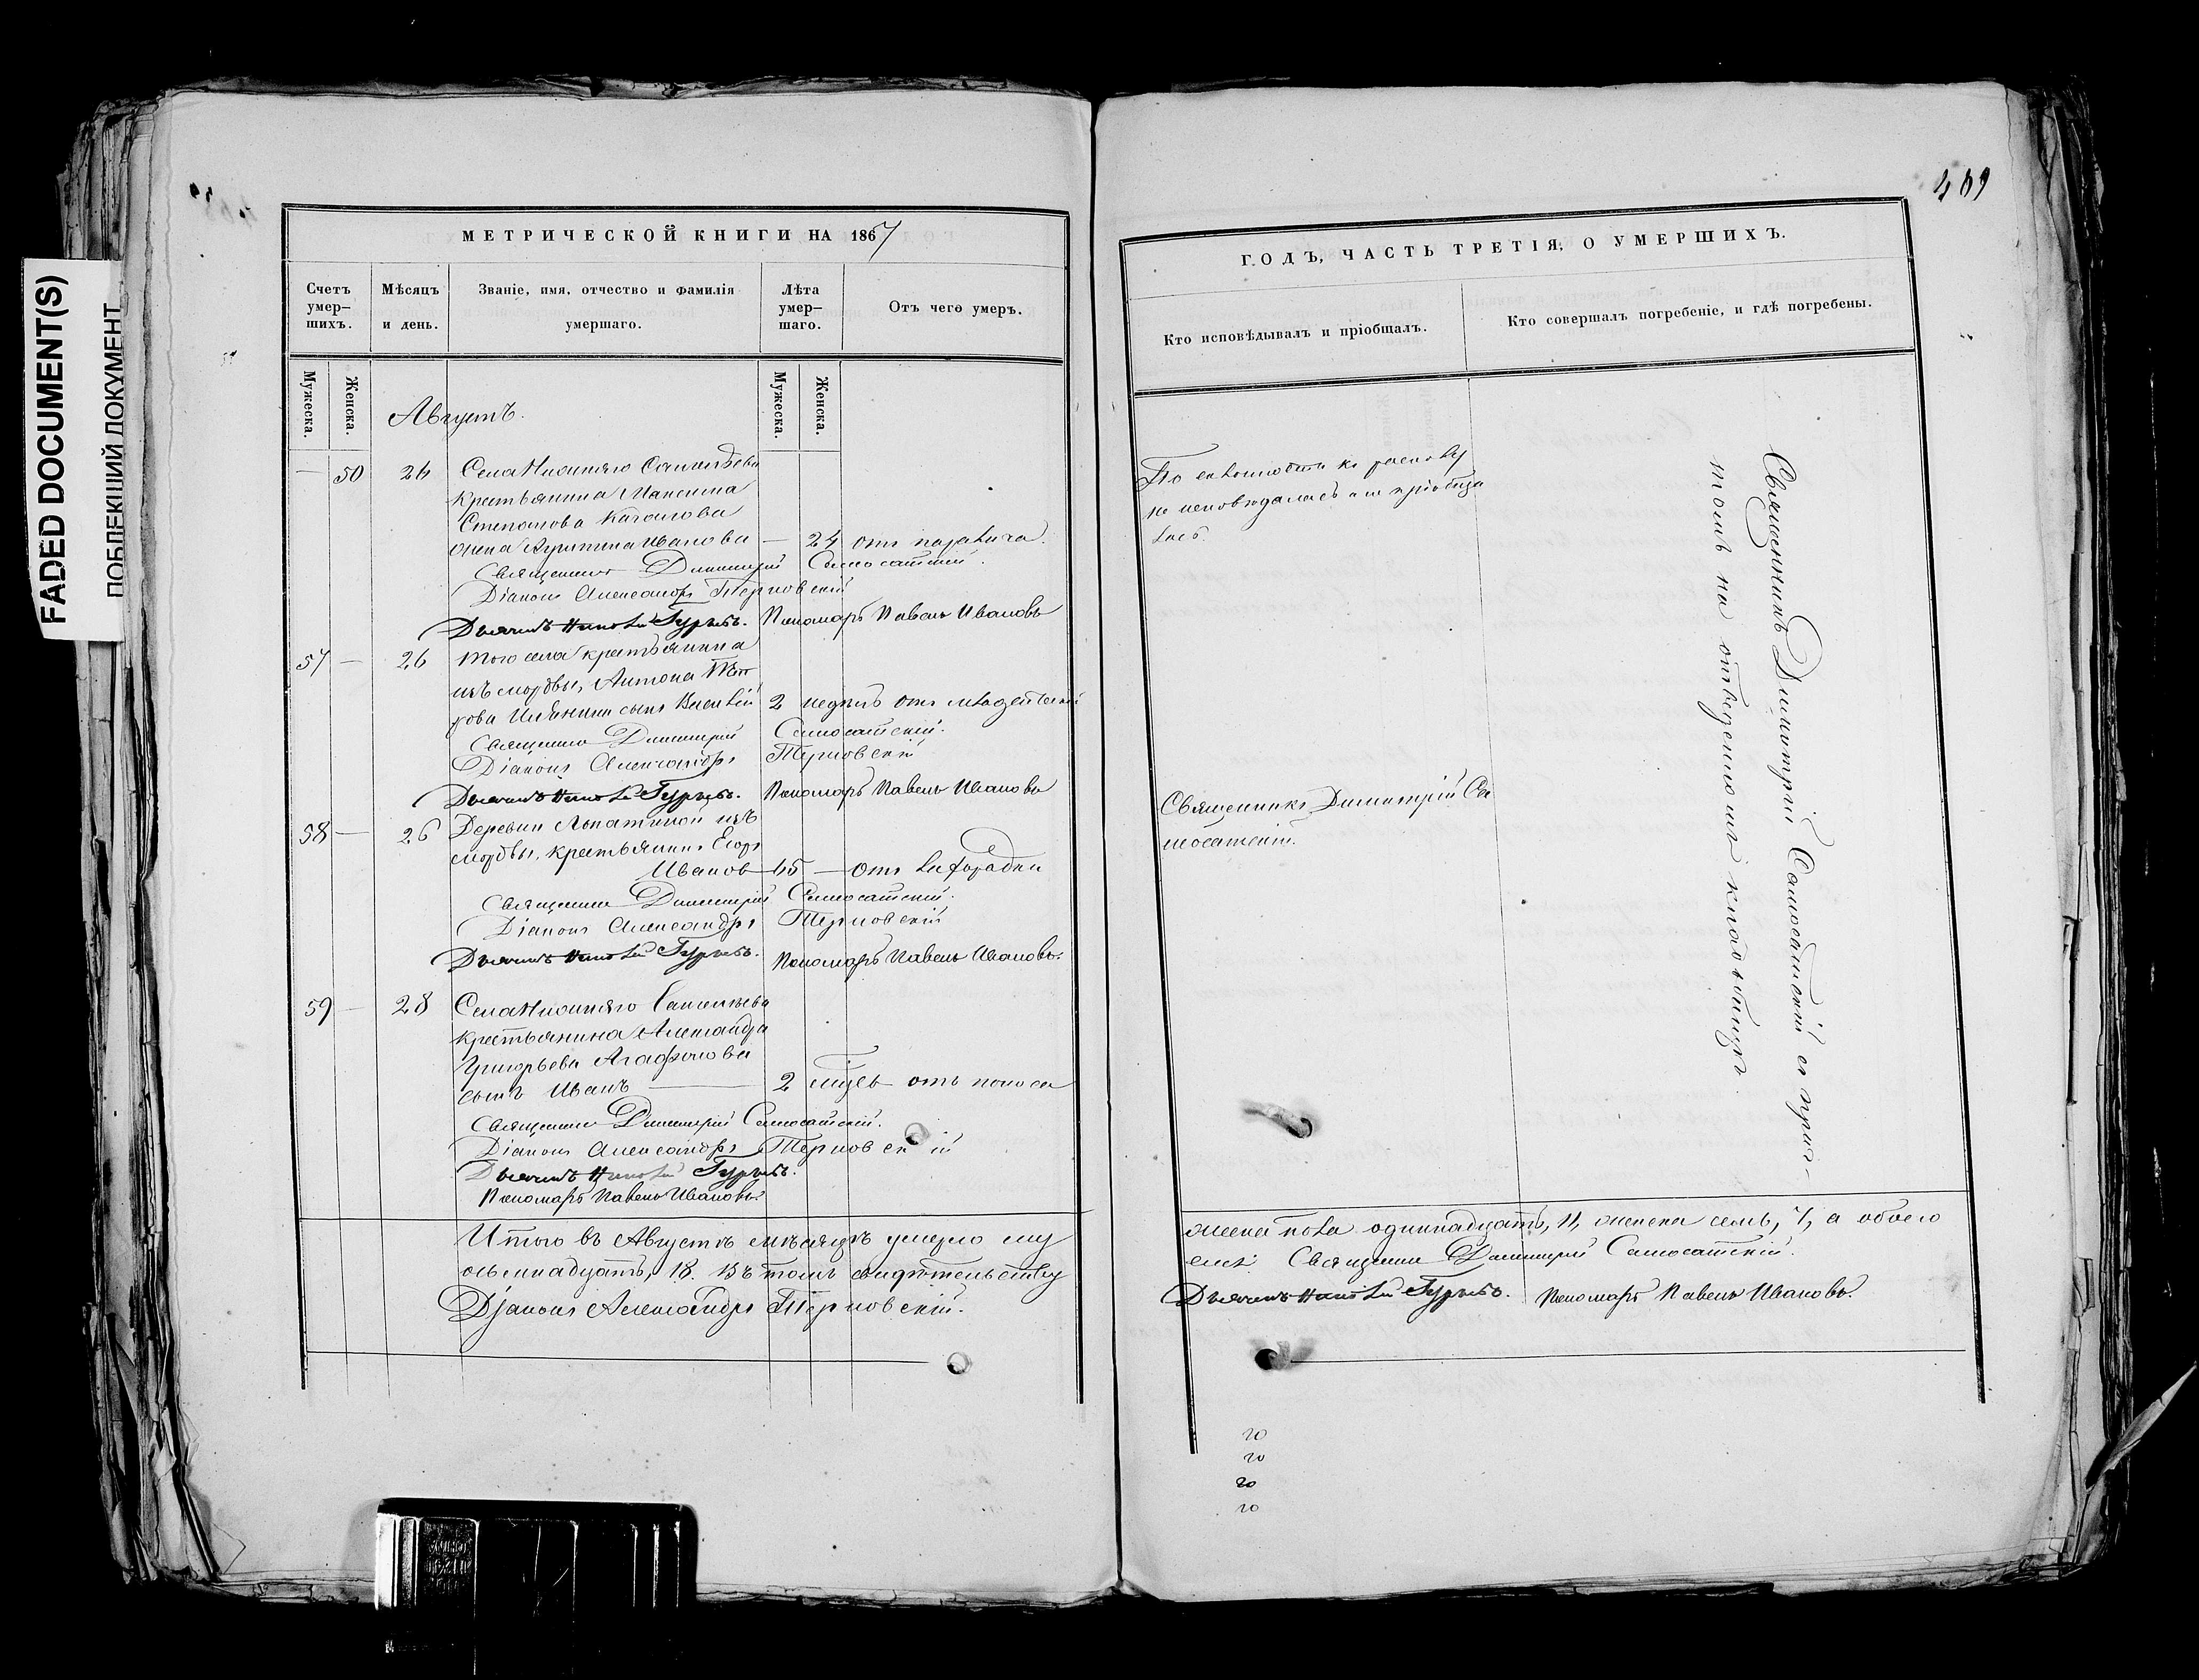 FADED DOCUMENT(S)
ПОБЛЕКШИЙ ДОКУМЕНТ
МЕТРИЧЕСКОЙ КНИГИ НА 1867
Счетъ умер-шихъ.
Мѣсяцъ и день.
Званіе, имя, отчество и фамилія умершаго.
Лѣта умер-шаго.
Отъ чего умеръ.
Мужеска.
Женска.
Мужеска.
Женска.
Августъ.
— 50 24 Села Нижняго
крестьянина Максима
Степанова
жена Иванова — 24 отъ паралича.
Священникъ Димитрій Самосатскій.
Діаконъ Александръ Терновскій
Дьячекъ Гурьевъ. Пономарь Павелъ Ивановъ
57 — 26 того села крестьянина
изъ мордвы, Антона Пет
рова сынъ Василій 2 недѣль отъ младенческой
Священникъ Димитрій Самосатскій.
Діаконъ Александръ Терновскій
Дьячекъ Гурьевъ. Пономарь Павелъ Ивановъ
58 — 26 Деревни Лопатиной изъ
мордвы, крестьянинъ Егоръ
Ивановъ 65 — отъ лихорадки
Священникъ Димитрій Самосатскій.
Діаконъ Александръ Терновскій
Дьячекъ Гурьевъ. Пономарь Павелъ Ивановъ.
59 — 28 Села Нижняго
крестьянина Александра
Григорьева Агафонова
сынъ Иванъ — 2 мѣсяц отъ поноса
Священникъ Димитрій Самосатскій.
Діаконъ Александръ Терновскій
Дьячекъ Гурьевъ.
Пономарь Павелъ Ивановъ.
Итого въ Августѣ мѣсяцѣ умерло му
осьмнадцать, 18. Въ томъ свидѣтельству
Діаконъ Александръ Терновскій.
409
ГОДЪ, ЧАСТЬ ТРЕТІЯ, О УМЕРШИХЪ.
Кто исповѣдывалъ и пріобщалъ.
Кто совершалъ погребеніе, и гдѣ погребены.
По
не исповѣдалась и не пріобща
лась.
Священникъ Димитрій Са
мосатскій.
Священникъ Димитрій Самосатскій съ прич-
томъ на отведенномъ кладбищѣ
жеска пола одиннадцать, 11, женска семь, 7, а обоего
емъ: Священникъ Димитрій Самосатскій.
Дьячекъ Гурьевъ. Пономарь Павелъ Ивановъ.
20
20
20
20